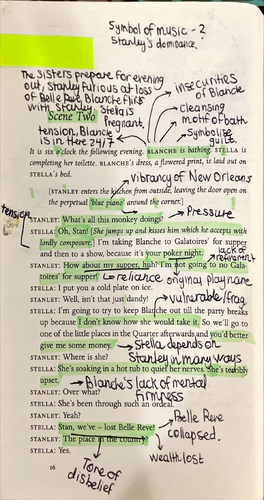 Symbol of music - 2
Stanley's dominance.
The Sisters prepare for evening
out, Stanley furious at loss
of Belle Rêve. Blanche flirts
with Stanley. Stella is
Pregnant.
insecurities
of Blanche
cleansing
motif of bath
Symbolise
guilt.
Scene Two
tension, Blanche
is in there 24/7
It is six o'clock the following evening. BLANCHE is bathing. STELLA is
completing her toilette. BLANCHE'S dress, a flowered print, is laid out on
STELLA'S bed.
vibrancy of New Orleans
[STANLEY enters the kitchen from outside, leaving the door open on
the perpetual 'blue piano' around the corner.]
tension
Pressure
STANLEY: What's all this monkey doings?
STELLA: Oh, Stan! [She jumps up and kisses him which he accepts with
lordly composure.] I'm taking Blanche to Galatoires' for supper
and then to a show, because it's your poker night.
lack of
refinement
STANLEY: How about my supper, huh? I'm not going to no Gala-
toires' for supper!
reliance
original play name
STELLA: I put you a cold plate on ice.
STANLEY: Well, isn't that just dandy!
vulnerable/frag
STELLA: I'm going to try to keep Blanche out till the party breaks
up because I don't know how she would take it. So we'll go to
one of the little places in the Quarter afterwards and you'd better
give me some money.
Stella depends on
Stanley in many ways
STANLEY: Where is she?
STELLA: She's soaking in a hot tub to quiet her nerves. She's terribly
upset.
Blanche's lack of mental
firmness
STANLEY: Over what?
STELLA: She's been through such an ordeal.
STANLEY: Yeah?
STELLA: Stan, we've – lost Belle Reve!
Belle Reve
collapsed.
STANLEY: The place in the country?
STELLA: Yes.
wealth lost
16
Tone of
disbelief